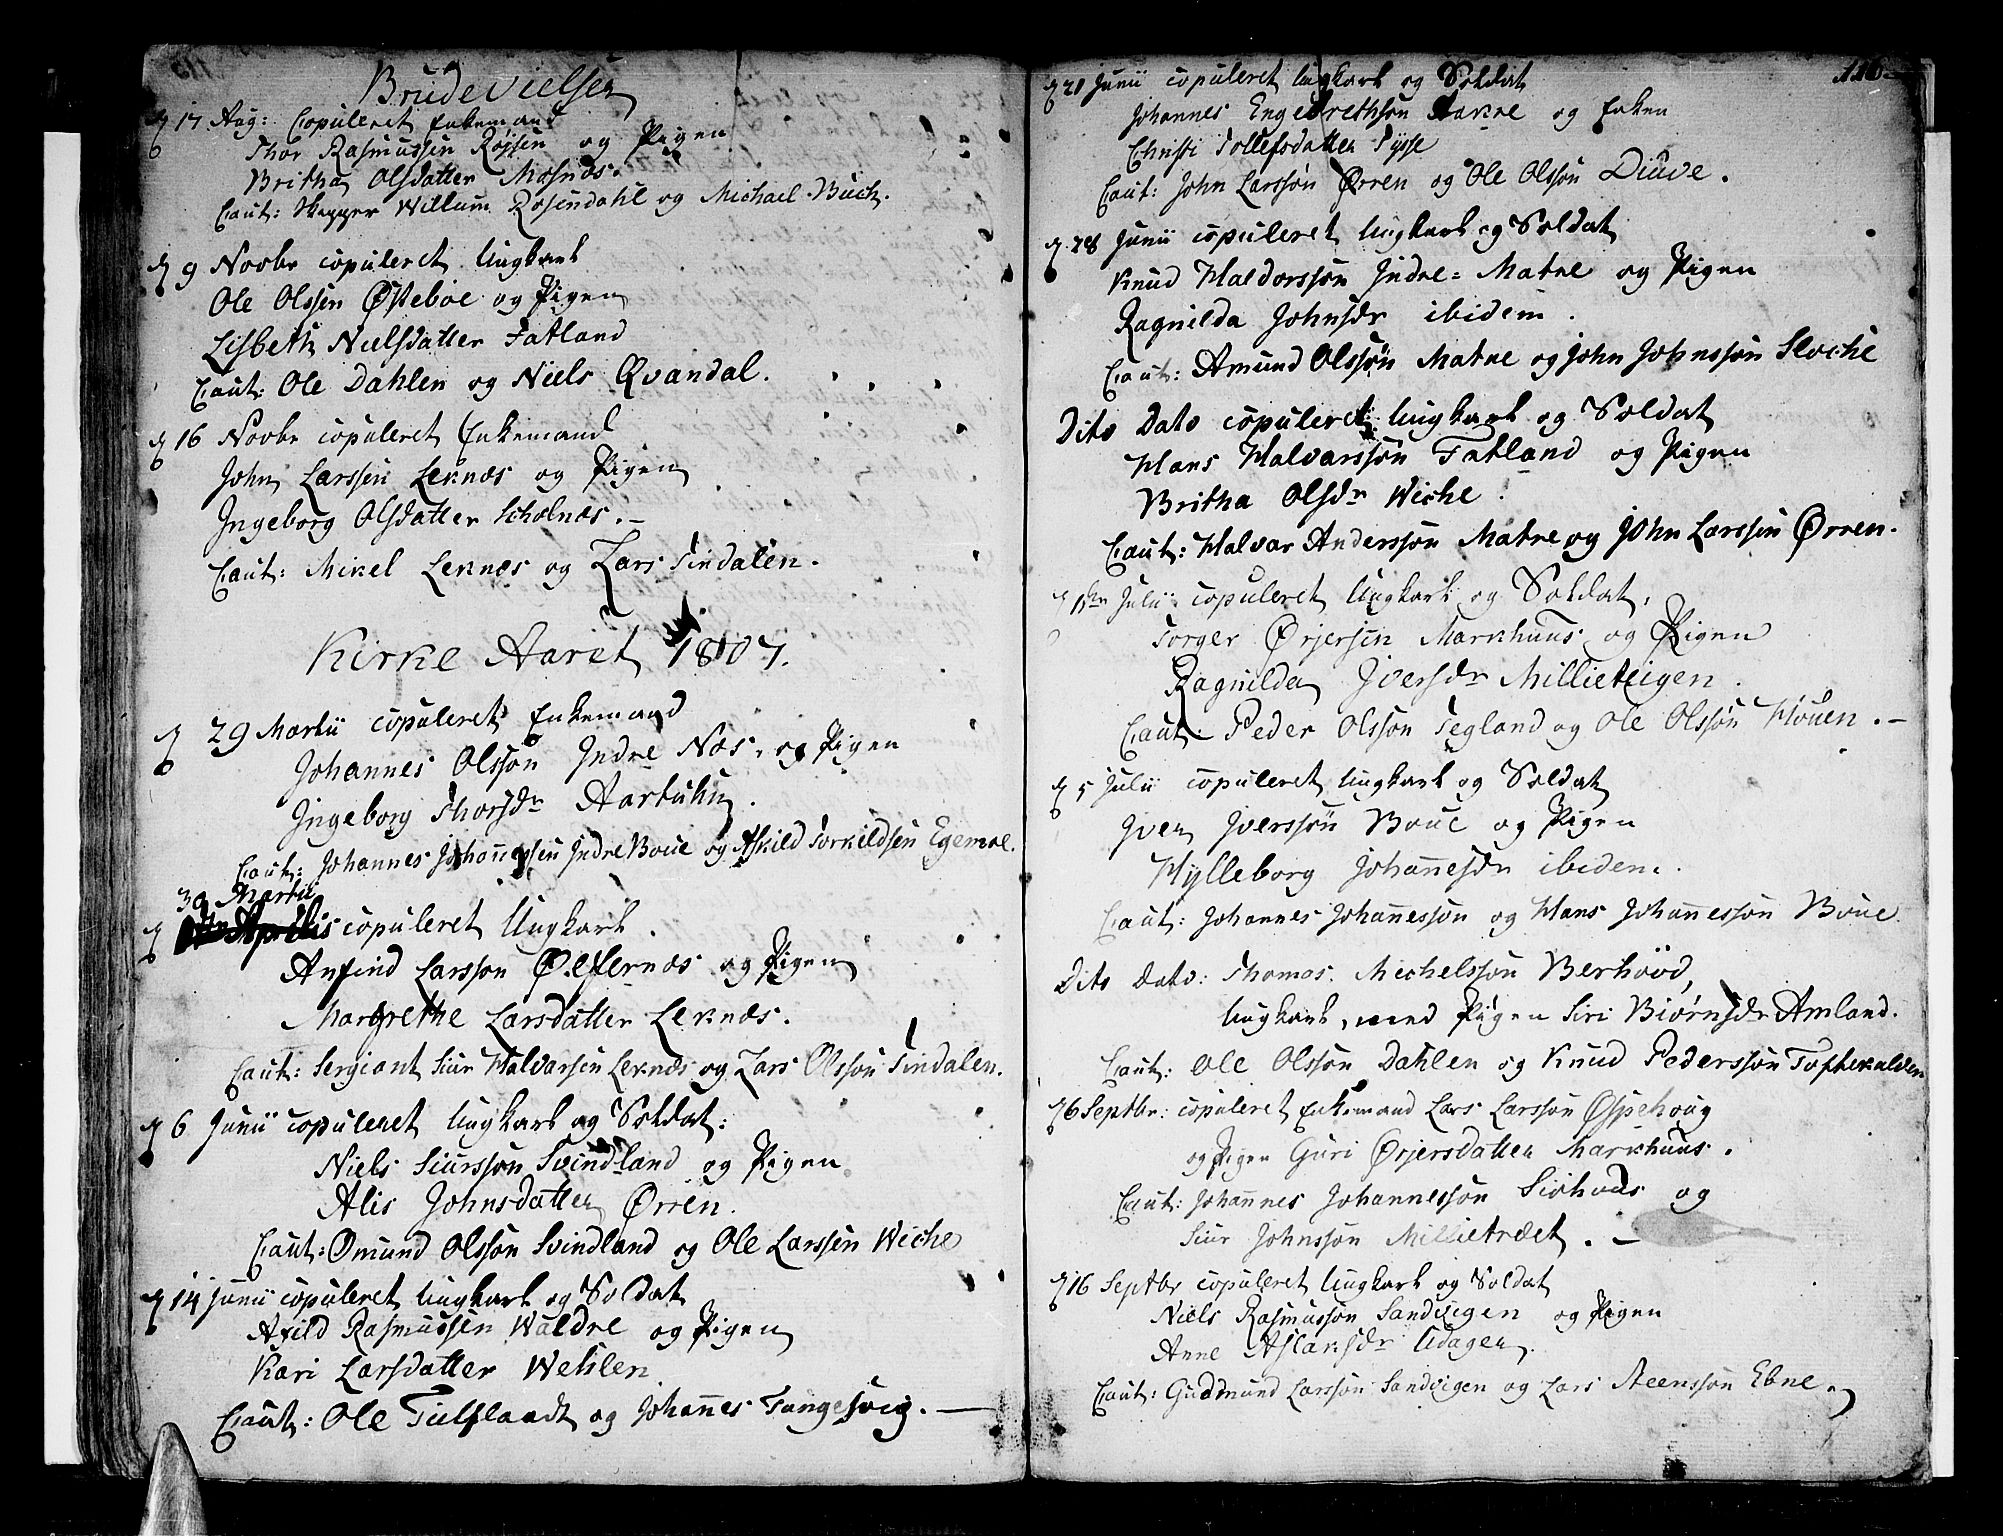 Brudevielser
d 17 Aug: Copuleret Enkemand
Thor Rasmussen Røysen og Pigen
Britha Olsdatter Mosnæs.
Caut: Willum Rosendahl og Michael Buch.
d 9 Novbr copuleret Ungkarl
Ole Olssen Østeboe og Pigen
Lisbeth Nielsdatter Fatland
Caut: Ole Dahlen og Niels Qvandal.
d 16 Novbr copuleret Enkemand
John Larssen Leknæs og Pigen
Ingeborg Olsdatter Scholnæs. –
Caut: Mikel Leknæs og Lars Tindalen.
Kirke Aaret 1807.
d 29 Martii copuleret Enkemand
Johannes Olssøn Indre Næs, og Pigen
Ingeborg Thorsdr Aartuhn.
Caut: Johannes Johannessen Indre Boue og Askild Torkildsen Egemoe.
30 Martii
d copuleret Ungkarl.
Anfind Larsson Ølfernæs og Pigen
Margrethe Larsdatter Leknæs.
Caut: Sergiant Siur Halvarsen Leknæs og Lars Olsson Tindalen.
d 6 Junii copuleret Ungkarl og Soldat:
Niels Siurssøn Svindland og Pigen
Alis Johnsdatter Ørren.
Caut: Omund Olssøn Svindland og Ole Larssen Wiche
d 14 Junii copuleret Ungkarl og Soldat
Axild Rasmussen Waldre og Pigen
Kari Larsdatter Wehlen
Caut: Ole Tielflaadt og Johannes Tungesvig. –
116
d 21 Junii copuleret Ungkarl og Soldat
Johannes Engebrethsøn Aakre og Enken
Christi Tollefsdatter Tysse
Caut: John Larssøn Ørren og Ole Olssøn Diuve.
d 28 Junii copuleret Ungkarl og Soldat
Knud Haldorssøn Indre=Matre og Pigen
Ragnilda Johnsdr ibidem.
Caut: Amund Olssøn Matre og John Johnssøn Sloche
Dito Dato copuleret Ungkarl og Soldat
Hans Halvarssøn Fatland og Pigen
Britha Olsdr Wiche.
Caut: Halvar Anderssøn Matre og John Larssøn Ørren.
d Julii copuleret Ungkarl og Soldat,
Torger Ørjersen Markhuus og Pigen
Ragnilda Iversdr Millieteigen.
Caut: Peder Olsson Tegland og Ole Olssøn Høuen. –
d 5 Julii copuleret Ungkarl og Soldat
Iver Iverssøn Boue og Pigen
Hylleborg Johannesdr ibidem.
Caut: Johannes Johannessøn og Hans Johannessøn Boue
Dito Dato: Thomas Michelssøn Berhood,
Ungkarl, med Pigen Siri Biørnsdr Amland.
Caut: Ole Olssøn Dahlen og Knud Pederssøn Toftekalden
d 6 Septbr: copuleret Enkemand Lars Larssøn Ospehoug
og Pigen Guri Ørjersdatter Markhuus.
Caut: Johannes Johannessøn Siohuus og
Siur Johnssøn Millietræet. –
d 16 Septbr copuleret Ungkarl og Soldat
Niels Rasmussøn Sandvigen og Pigen
Anne Aslaksdr Udagen.
Caut: Gudmund Larssøn Sandvigen og Lars Steenssøn Ebne.